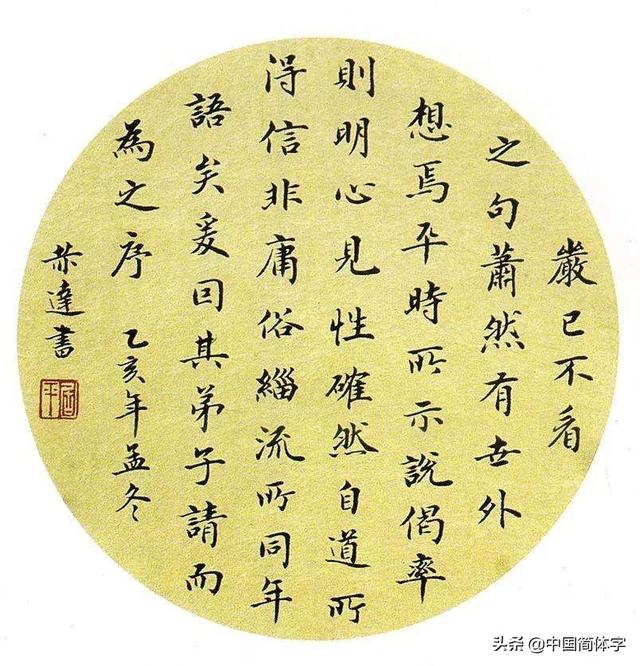 嚴已不看
之句蕭然有世外
想焉平時所示說偈率
則明心見性確然自道所
得信非庸俗緇流所同年
語矣爰因其弟子請而
為之序 乙亥年孟冬
恭達書
头条 @中国简体字